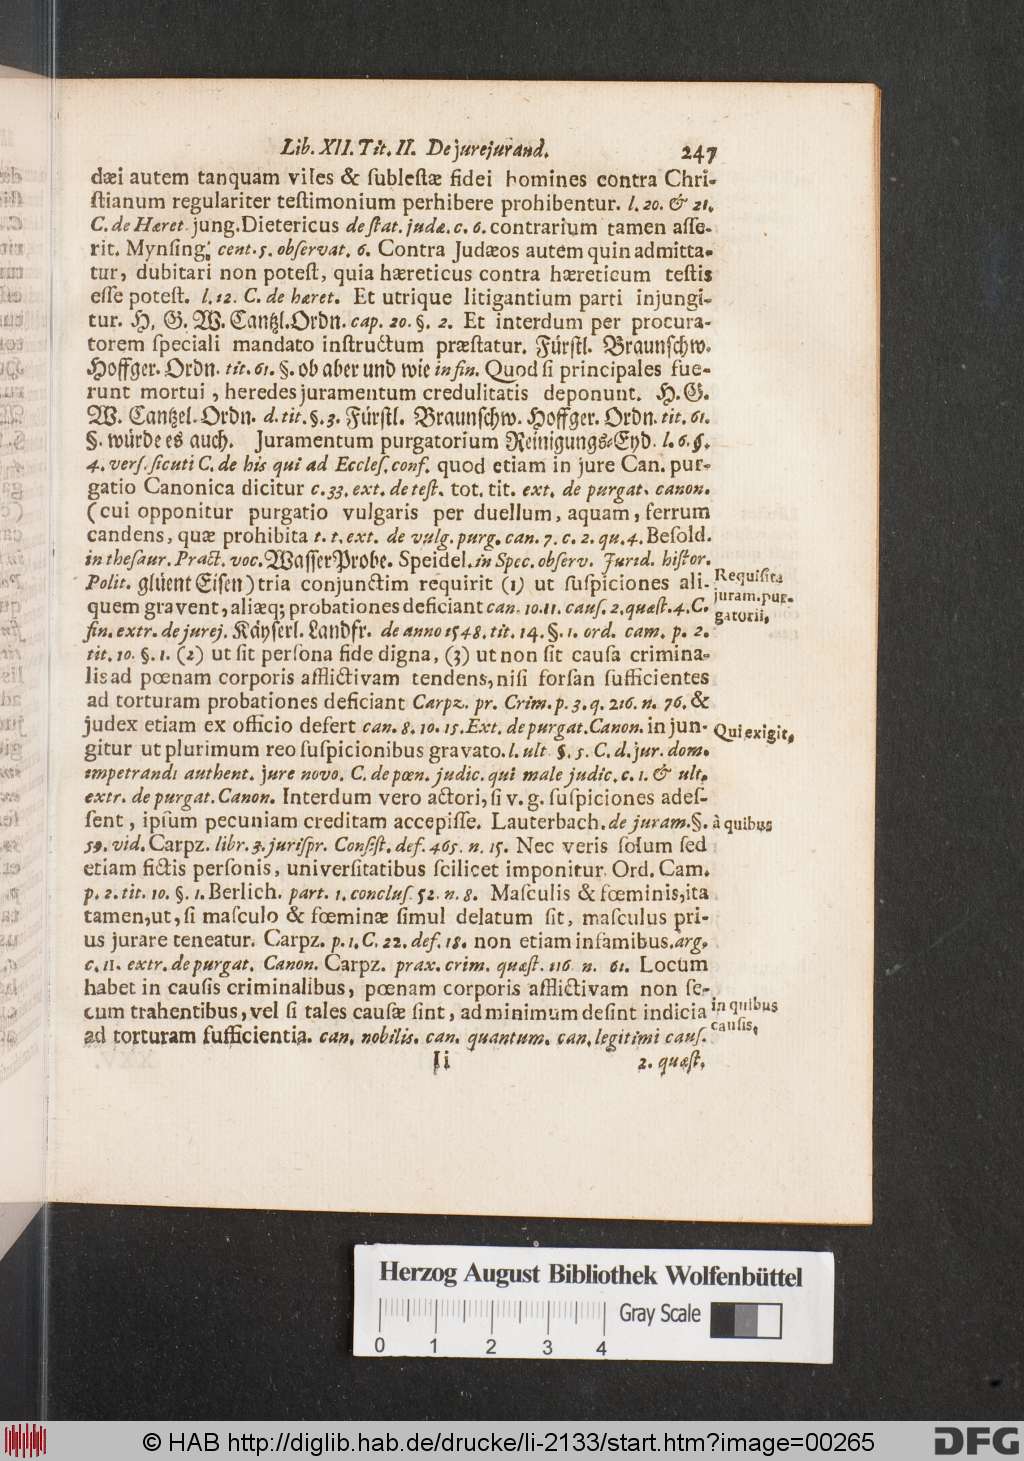 Lib. XII. Tit. II. De jurejurand. 247
dæi autem tanquam viles & ſubleſtæ fidei homines contra Chri-
ſtianum regulariter teſtimonium perhibere prohibentur. l. 20. & 21.
C. de Hæret. jung. Dietericus de ſtat. judæ. c. 6. contrarium tamen aſſe-
rit. Mynſing. cent. 5. obſervat. 6. Contra Judæos autem quin admitta-
tur, dubitari non poteſt, quia hæreticus contra hæreticum teſtis
eſſe poteſt. l. 12. C. de hæret. Et utrique litigantium parti injungi-
tur. H. G. W. Cantzl. Ordn. cap. 20. §. 2. Et interdum per procura-
torem ſpeciali mandato inſtructum præſtatur. Fürſtl. Braunſchw.
Hoffger. Ordn. tit. 61. §. ob aber und wie in fin. Quod ſi principales fue-
runt mortui, heredes juramentum credulitatis deponunt. H. G.
W. Cantzel. Ordn. d. tit. §. 3. Fürſtl. Braunſchw. Hoffger. Ordn. tit. 61.
§. würde es auch. Juramentum purgatorium Reinigungs-Eyd. l. 6. §.
4. verſ. ſicuti C. de his qui ad Eccleſ. conf. quod etiam in jure Can. pur-
gatio Canonica dicitur c. 33. ext. de teſt. tot. tit. ext. de purgat. canon.
(cui opponitur purgatio vulgaris per duellum, aquam, ferrum
candens, quæ prohibita t. t. ext. de vulg. purg. can. 7. c. 2. qu. 4. Beſold.
in theſaur. Pract. voc. WaſſerProbe. Speidel. in Spec. obſerv. Jurid. hiſtor.
Polit. glüent Eiſen) tria conjunctim requirit (1) ut ſuſpiciones ali-
Requiſita
quem gravent, aliæq; probationes deficiant can. 10. 11. cauſ. 2. quæſt. 4. C.
juram. pur-
gatorii,
fin. extr. de jurej. Käyſerl. Landfr. de anno 1548. tit. 14. §. 1. ord. cam. p. 2.
tit. 10. §. 1. (2) ut ſit perſona fide digna, (3) ut non ſit cauſa crimina-
lis ad pœnam corporis afflictivam tendens, niſi forſan ſufficientes
ad torturam probationes deficiant Carpz. pr. Crim. p. 3. q. 216. n. 76. &
judex etiam ex officio defert can. 8. 10. 15. Ext. de purgat. Canon. in jun-
Qui exigit,
gitur ut plurimum reo ſuſpicionibus gravato. l. ult §. 5. C. d. jur. dom.
impetrandi authent. jure novo. C. de pœn. judic. qui male judic. c. 1. & ult.
extr. de purgat. Canon. Interdum vero actori, ſi v. g. ſuſpiciones adeſ-
ſent, ipſum pecuniam creditam accepiſſe. Lauterbach. de juram. §.
à quibus
59. vid. Carpz. libr. 3. juriſpr. Conſiſt. def. 465. n. 15. Nec veris ſolum ſed
etiam fictis perſonis, univerſitatibus ſcilicet imponitur. Ord. Cam.
p. 2. tit. 10. §. 1. Berlich. part. 1. concluſ. 52. n. 8. Maſculis & fœminis, ita
tamen, ut, ſi maſculo & fœminæ ſimul delatum ſit, maſculus pri-
us jurare teneatur. Carpz. p. 1. C. 22. def. 18. non etiam infamibus. arg.
c. 11. extr. de purgat. Canon. Carpz. prax. crim. quæſt. 116 n. 61. Locum
habet in cauſis criminalibus, pœnam corporis afflictivam non ſe-
cum trahentibus, vel ſi tales cauſæ ſint, ad minimum deſint indicia
in quibus
cauſis,
ad torturam ſufficientia. can. nobilis. can. quantum. can. legitimi cauſ.
Ii 2. quæſt.
Herzog August Bibliothek Wolfenbüttel
Gray Scale
0 1 2 3 4
© HAB http://diglib.hab.de/drucke/li-2133/start.htm?image=00265
DFG